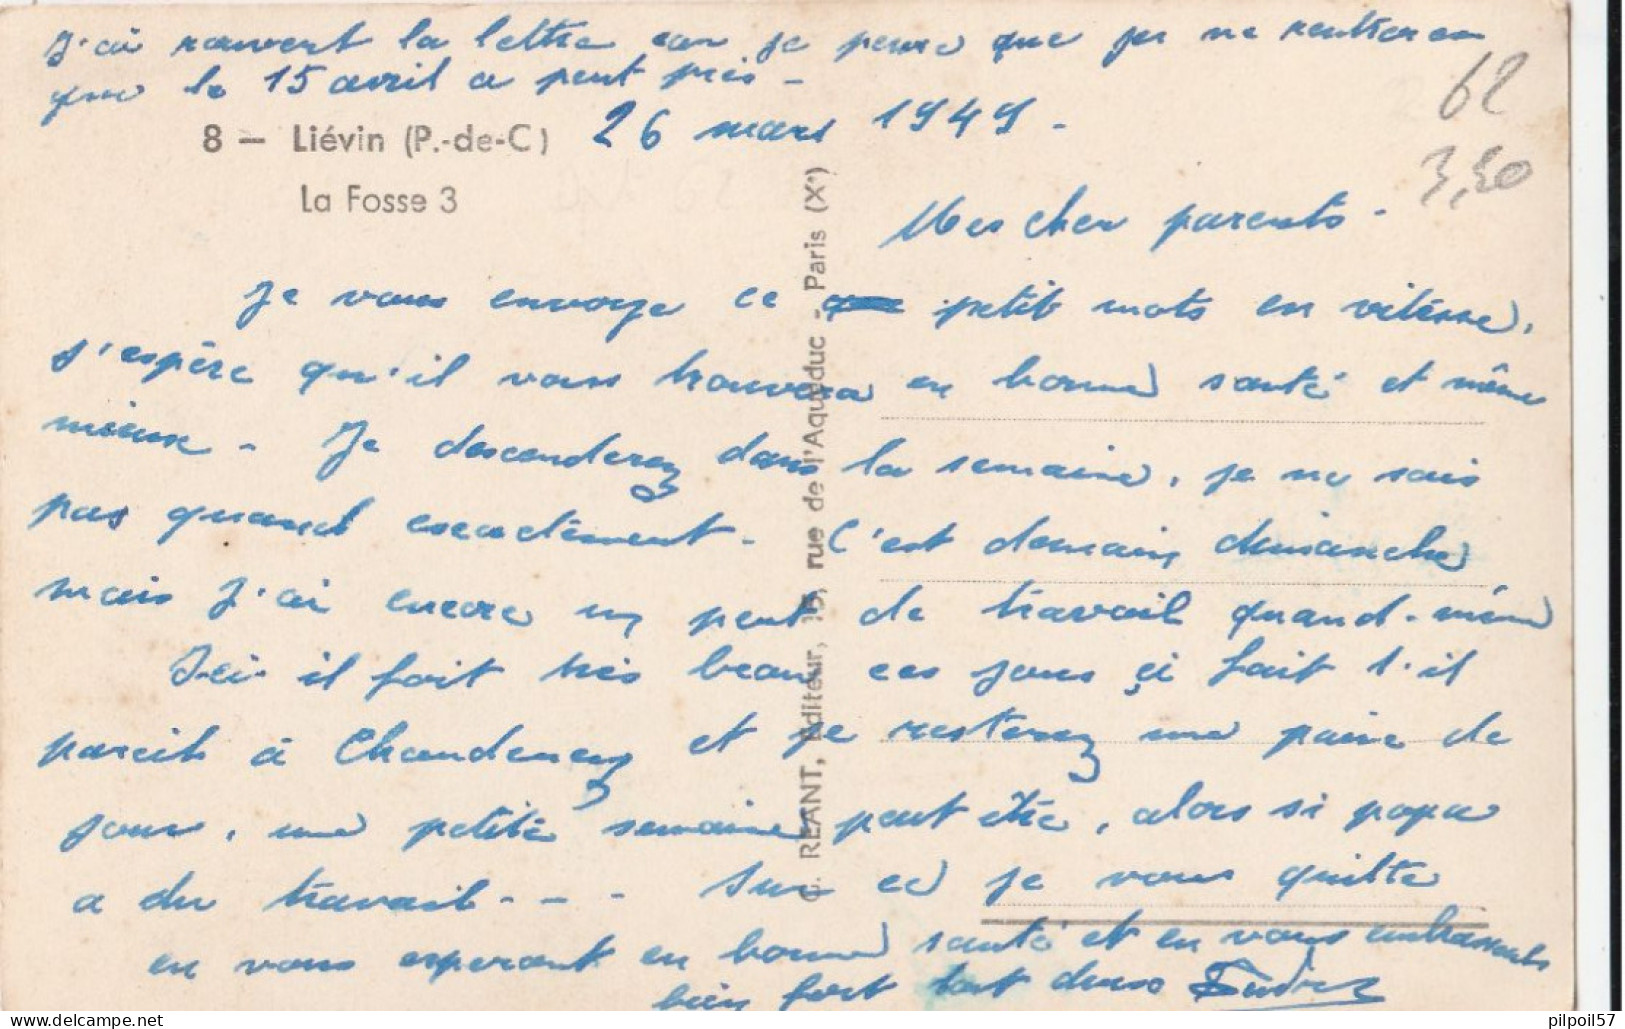 J'ai rouvert la lettre car je pense que je ne rentrerai
que le 15 avril a peut près -
8 — Liévin (P.-de-C)
La Fosse 3
26 mars 1949 -
62
3,50
Mes cher parents -
Je vous envoye ce petit mots en vitèsse,
j'espère qu'il vous trouvera en bonne santé et même
mieux - Je descenderez dans la semaine, je ne sais
pas quand exactèment - C'est demain dimanche
mais j'ai encore un peut de travail quand-même
Ici il fait très beau ces jours çi fait t'il
pareils à Chaudeney et je resterez une paire de
jours, une petite semaine peut être, alors si papa
a du travail - - - Sur ce je vous quitte
en vous esperant en bonne santé et en vous embrassents
bien fort tout deux
G. RÉANT, Éditeur, 15, rue de l'Aqueduc - Paris (Xe)
pilpoil57
www.delcampe.net